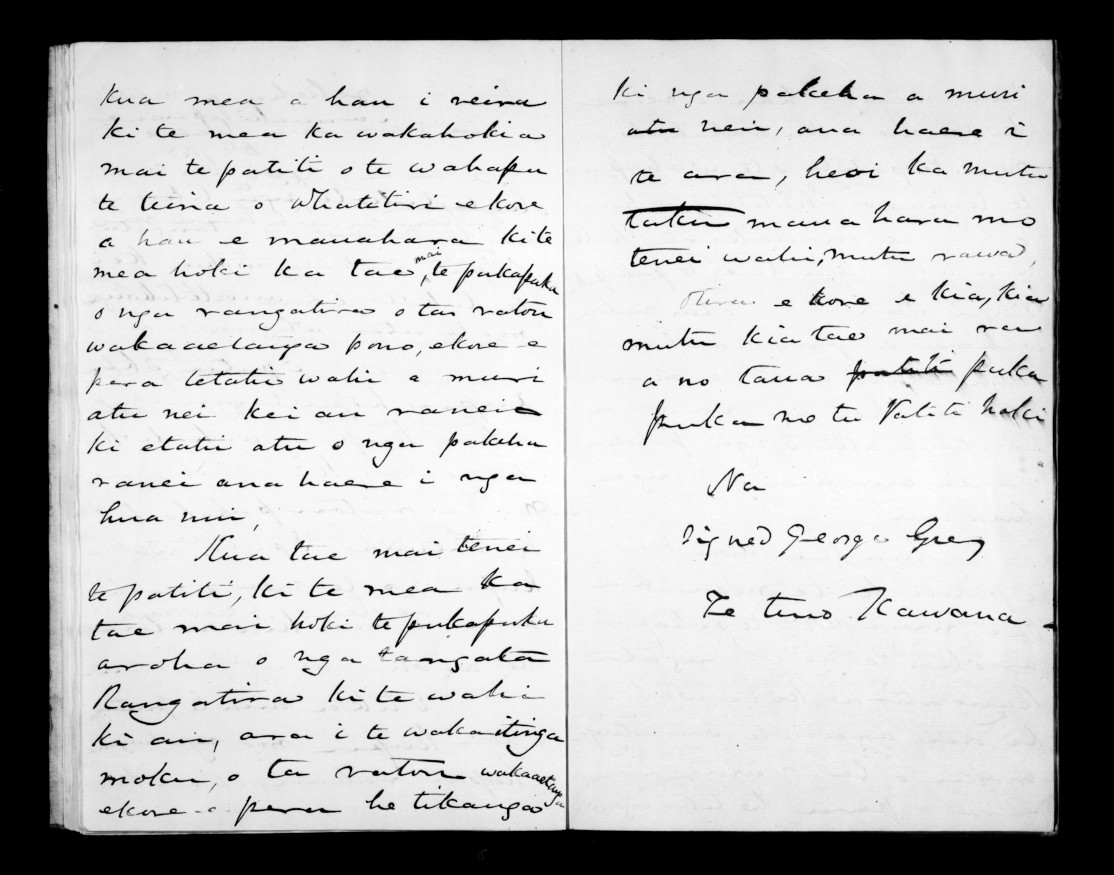 Kua mea a hau i reira
ki te mea ka wakahokia
mai te patiti o te wahapu
te teina o Whatitiri ekore
a hau e manahara ki te
mea hoki ka tae mai, te pukapuka
o nga rangatira o ta ratou
wakaaetanga pono, ekore e
pera tetatu wahi a muri
atu nei kei au ranei
ki etatu atu o nga pakeha
ranei ana haere i nga
hua nui,
Kua tae mai tenei
te patiti, ki te mea ka
tae mai hoki te pukapuka
aroha o nga tangata
Rangatira ki te wahi
ki au, ara i te wakaitinga
moku, o ta ratou wakaaetanga
ekore e pera he tikanga
ki nga pakeha a muri
atu nei, ana haere i
te ara, heoi ka mutu
taku manahara mo
tenei wahi, mutu rawa,
otira e kore e kia, kia
mutu kia tae mai ra
a no taua patiti puka
puka no te Patiti hoki
Na
Signed George Grey
Te tino Kawana